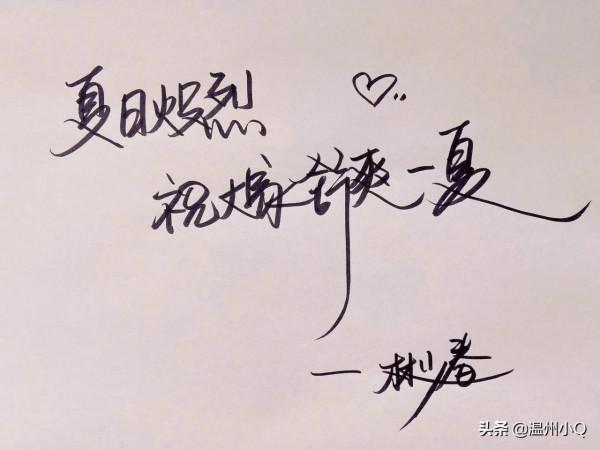 夏日炽烈
祝嫁舒爽一夏
一彬春
头条 @温州小Q